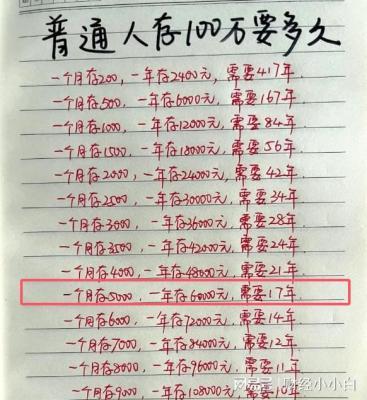 普通人存100万要多久
一个月存200，一年2400元，需要417年
一个月存500，一年6000元，需要167年
一个月存1000，一年12000元，需要84年
一个月存1500，一年18000元，需要56年
一个月存2000，一年24000元，需要42年
一个月存2500，一年30000元，需要34年
一个月存3000，一年36000元，需要28年
一个月存3500，一年42000元，需要24年
一个月存4000，一年48000元，需要21年
一个月存5000，一年存60000元，需要17年
一个月存6000，一年72000元，需要14年
一个月存7000，一年84000元，需要12年
一个月存8000，一年96000元，需要11年
一个月存9000，一年108000元，需要10年
网易号 | 财经小小白